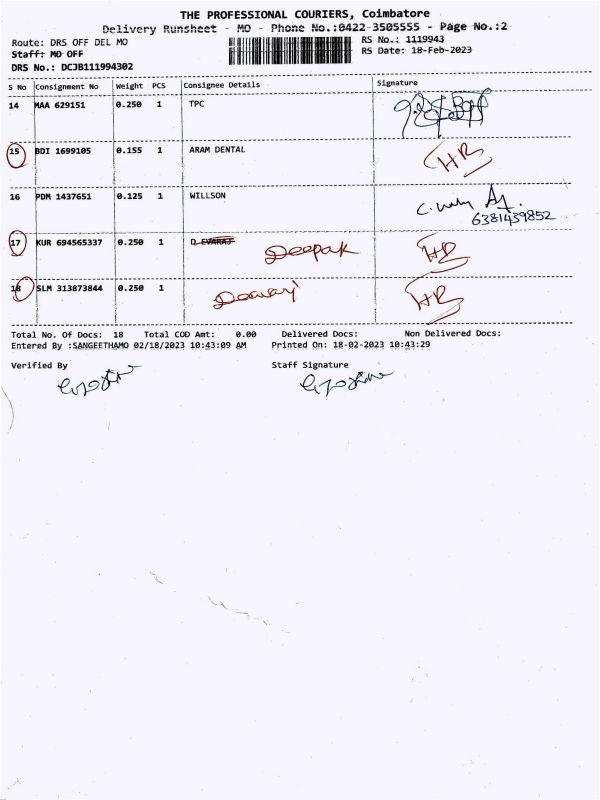 THE PROFESSIONAL COURIERS, Coimbatore
Delivery Runsheet - MO - Phone No.:0422-3505555 - Page No.:2
Route: DRS OFF DEL MO
RS No.: 1119943
Staff: MO OFF
RS Date: 18-Feb-2023
DRS No.: DCJB111994302
S No Consignment No Weight PCS Consignee Details Signature
14 MAA 629151 0.250 1 TPC
15 BDI 1699105 0.155 1 ARAM DENTAL HB
16 PDM 1437651 0.125 1 WILLSON
6381439852
17 KUR 694565337 0.250 1 D EVARAJ Deepak HB
18 SLM 313873844 0.250 1 HB
Total No. Of Docs: 18 Total COD Amt: 0.00 Delivered Docs: Non Delivered Docs:
Entered By :SANGEETHAMO 02/18/2023 10:43:09 AM Printed On: 18-02-2023 10:43:29
Verified By Staff Signature